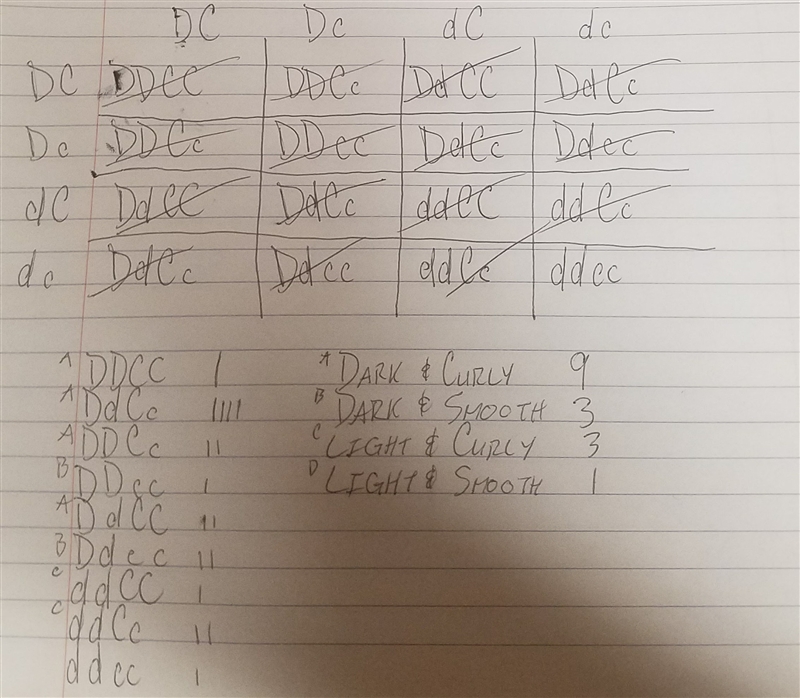 DC Dc dC dc
DC DDCC DDCc DdCC DdCc
Dc DDCc DDcc DdCc Ddcc
dC DdCC DdCc ddCC ddCc
dc DdCc Ddcc ddCc ddcc
A DDCC I A DARK & CURLY 9
A DdCc IIII B DARK & SMOOTH 3
A DDCc II C LIGHT & CURLY 3
B DDcc I D LIGHT & SMOOTH 1
A DdCC II
B Ddcc II
C ddCC I
C ddCc II
ddcc I